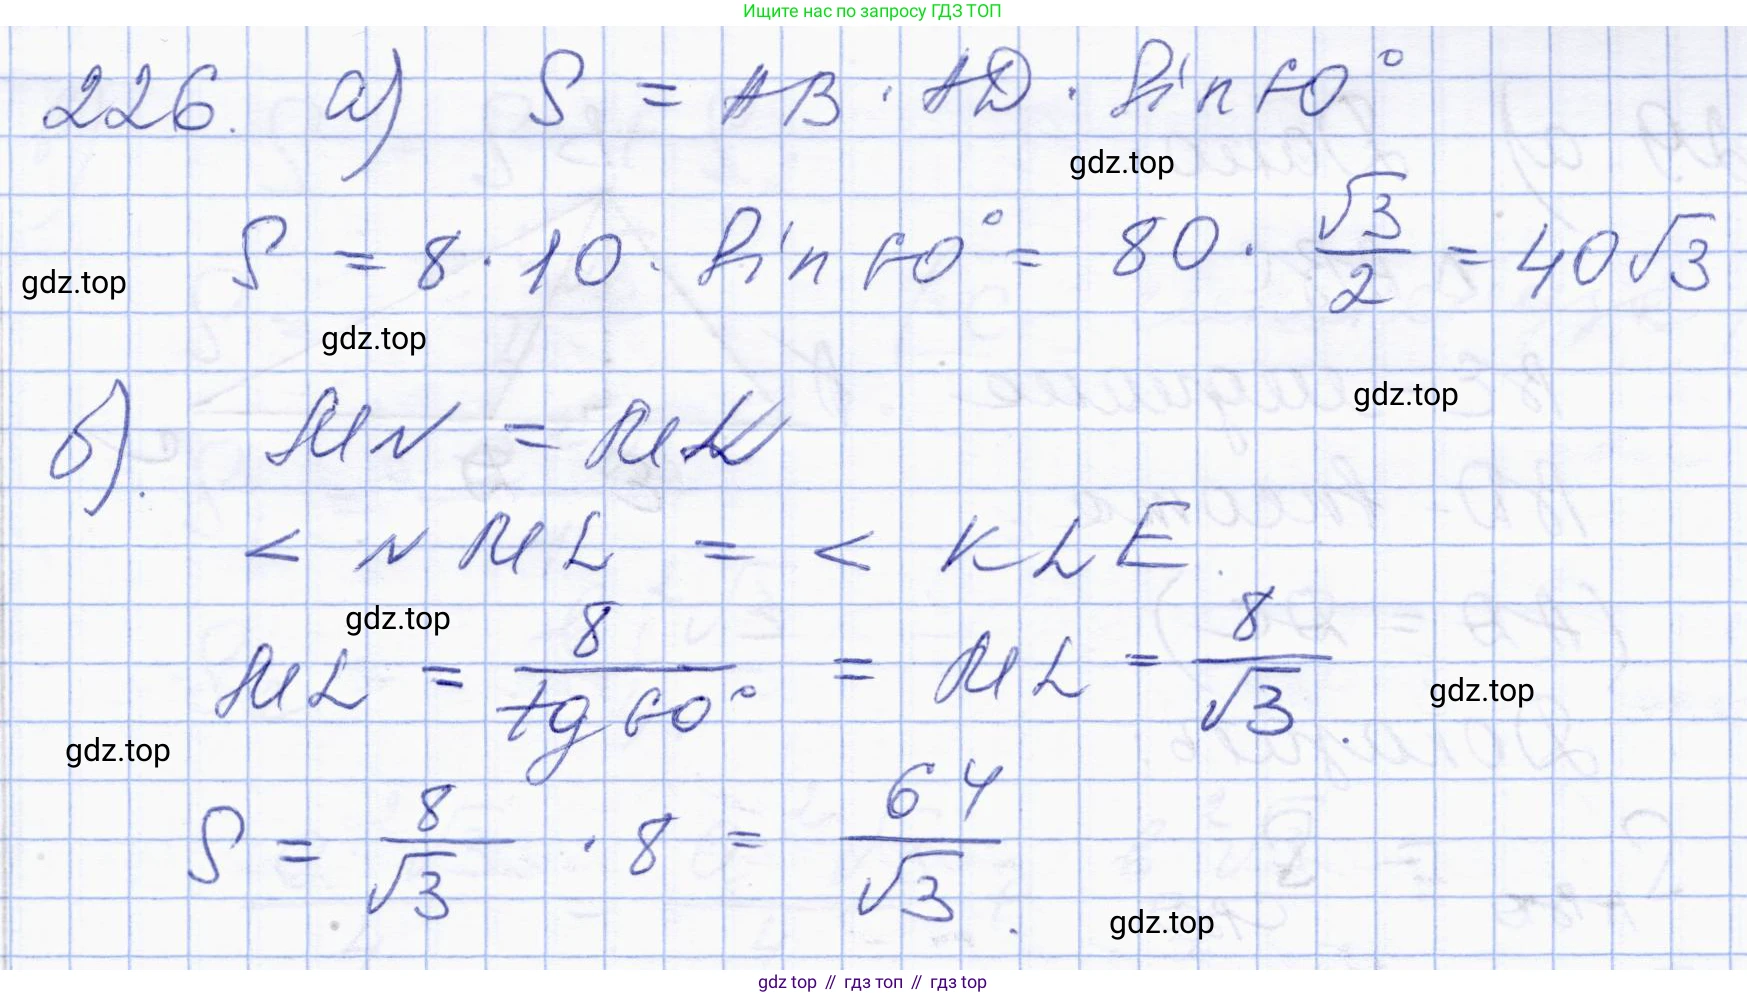 Ищите нас по запросу ГДЗ ТОП
226. а) S = AB · AD · sin 60°
gdz.top
S = 8 · 10 · sin 60° = 80 · √3/2 = 40√3
gdz.top
gdz.top
gdz.top
б). MN = MK
< NML = < KLE.
gdz.top
ML = 8/tg 60° = ML = 8/√3.
gdz.top
gdz.top
S = 8/√3 · 8 = 64/√3.
gdz.top
gdz top // гдз топ // гдз top